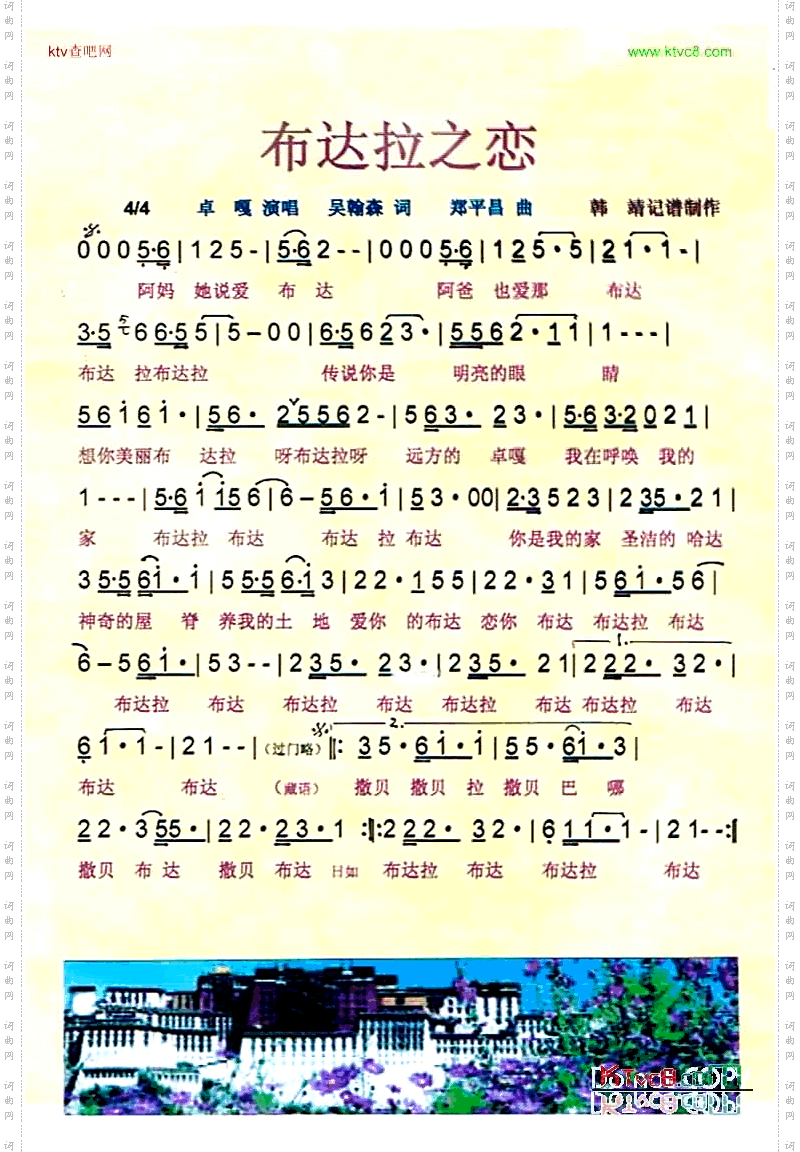 ktv查吧网 www.ktvc8.com
布达拉之恋
4/4 卓 嘎 演唱 吴翰森 词 郑平昌 曲 韩 靖记谱制作
0 0 0 5·6 | 1 2 5 - | 5·6 2 - - | 0 0 0 5·6 | 1 2 5·5 | 2 1·1 - |
阿妈 她说爱 布 达 阿爸 也爱那 布达
3·5 6 6·5 5 | 5 – 0 0 | 6·5 6 2 3· | 5 5 6 2·1 1 | 1 - - - |
布达 拉布达拉 传说你是 明亮的眼 睛
5 6 i 6 i· | 5 6· 2 5 5 6 2 - | 5 6 3· 2 3· | 5·6 3·2 0 2 1 |
想你美丽布 达拉 呀布达拉呀 远方的 卓嘎 我在呼唤 我的
1 - - - | 5·6 i i 5 6 | 6 – 5 6·i | 5 3·0 0 | 2·3 5 2 3 | 2 3 5·2 1 |
家 布达拉 布达 布达 拉 布达 你是我的家 圣洁的 哈达
3 5·5 6 i·i | 5 5·5 6·i 3 | 2 2·1 5 5 | 2 2·3 1 | 5 6 i·5 6 |
神奇的屋 脊 养我的土 地 爱你 的布达 恋你 布达 布达拉 布达
6 – 5 6 i· | 5 3 - - | 2 3 5· 2 3· | 2 3 5· 2 1 | 1. 2 2 2· 3 2· |
布达拉 布达 布达拉 布达 布达拉 布达 布达拉 布达
6 1·1 - | 2 1 - - | (过门略) ‖: 2. 3 5·6 i·i | 5 5·6 i·3 |
布达 布达 (藏语) 撒贝 撒贝 拉 撒贝 巴 哪
2 2·3 5 5· | 2 2·2 3·1 :‖: 2 2 2· 3 2· | 6 1 1·1 - | 2 1 - - :‖
撒贝 布 达 撒贝 布达 日如 布达拉 布达 布达拉 布达
KTVC8.COM
词曲网